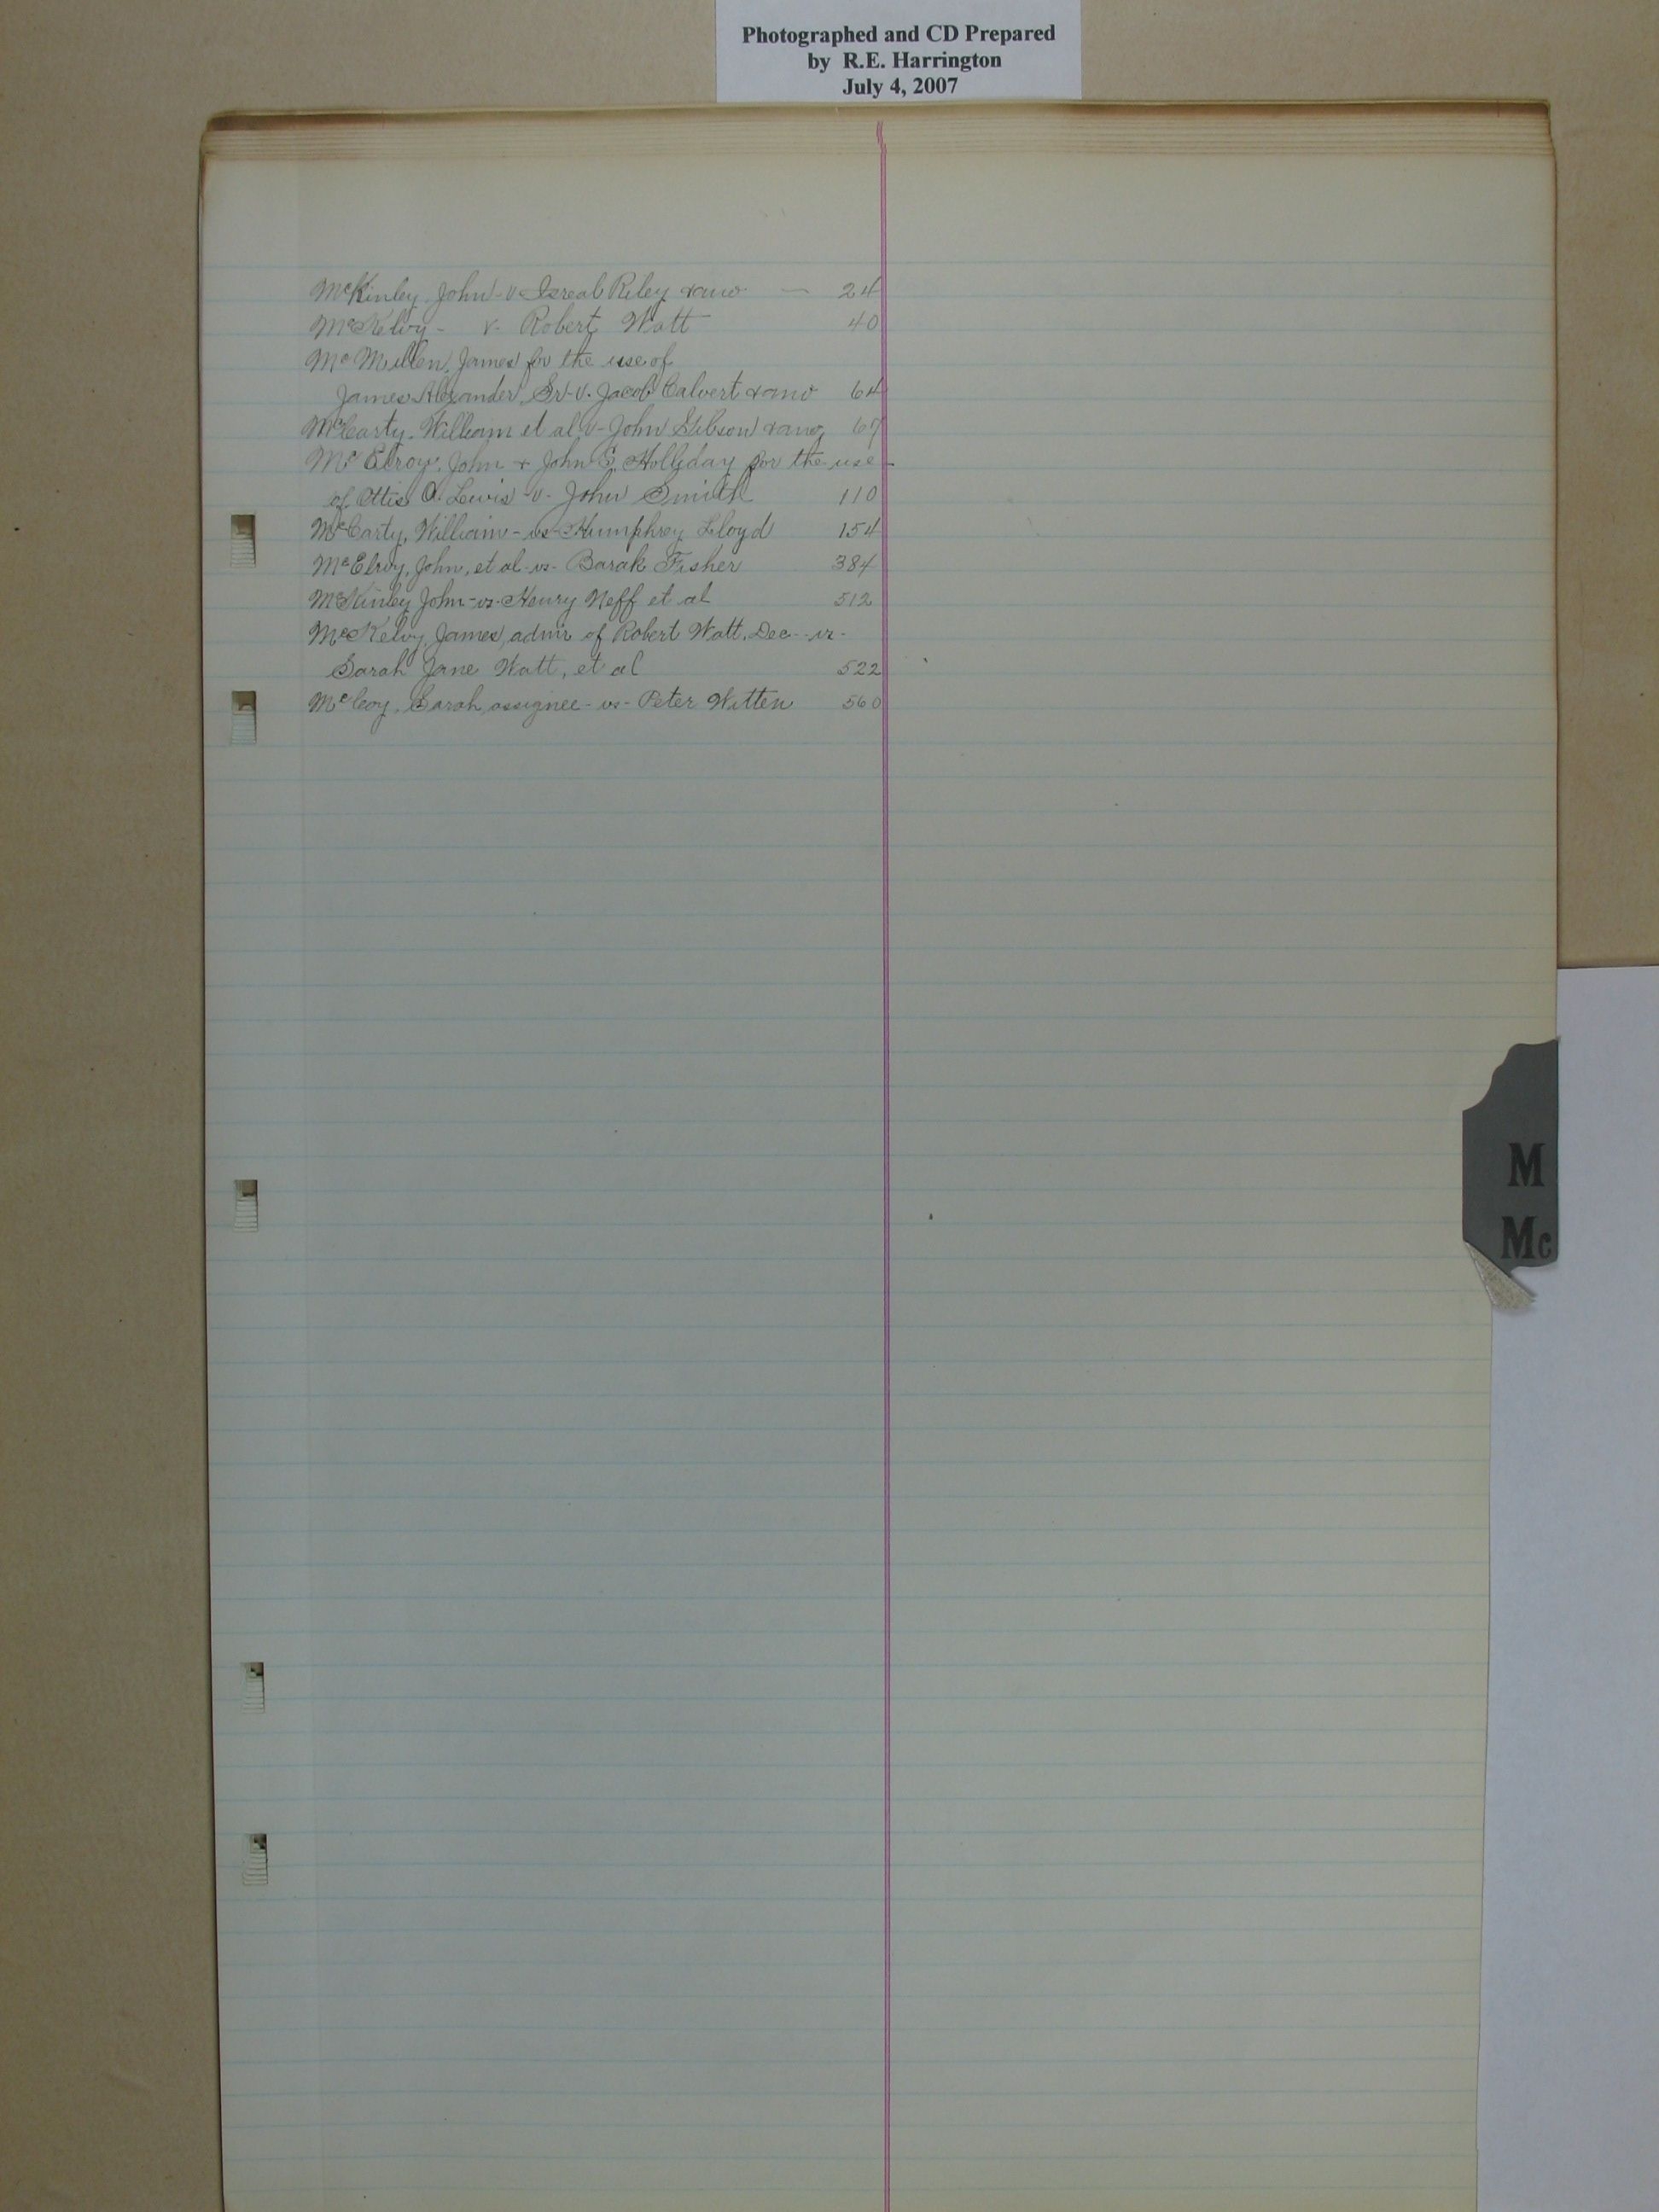 Photographed and CD Prepared
by R.E. Harrington
July 4, 2007
McKinley, John - v - Isreal Riley & ano — 24
McKelvy - v. Robert Watt 40
McMullen, James for the use of
James Alexander, Sr - v. Jacob Calvert & ano 64
McCarty, William et al v - John Stibson & ano, 67
McElroy, John & John S. Holliday for the use
of Ottis A. Lewis - v - John Smith 110
McCarty, William - vs - Humphrey Lloyd 154
McElroy, John, et al - vs - Barak Fisher 384
McKinley John - vs - Henry Neff et al 512
McKelvy, James, admr of Robert Watt, Dec - vs -
Sarah Jane Watt, et al 522
McCoy, Sarah, assignee - vs - Peter Witten 560
M
Mc